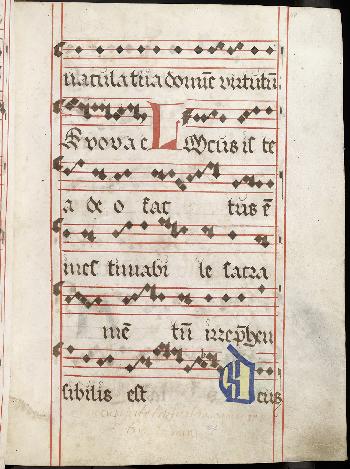 nacula tua domīe virtutū.
Evovae LOcus is te
a de o fac tus ē
ines timabi le sacra
mē tū irrep̄hen
sibilis est Deus